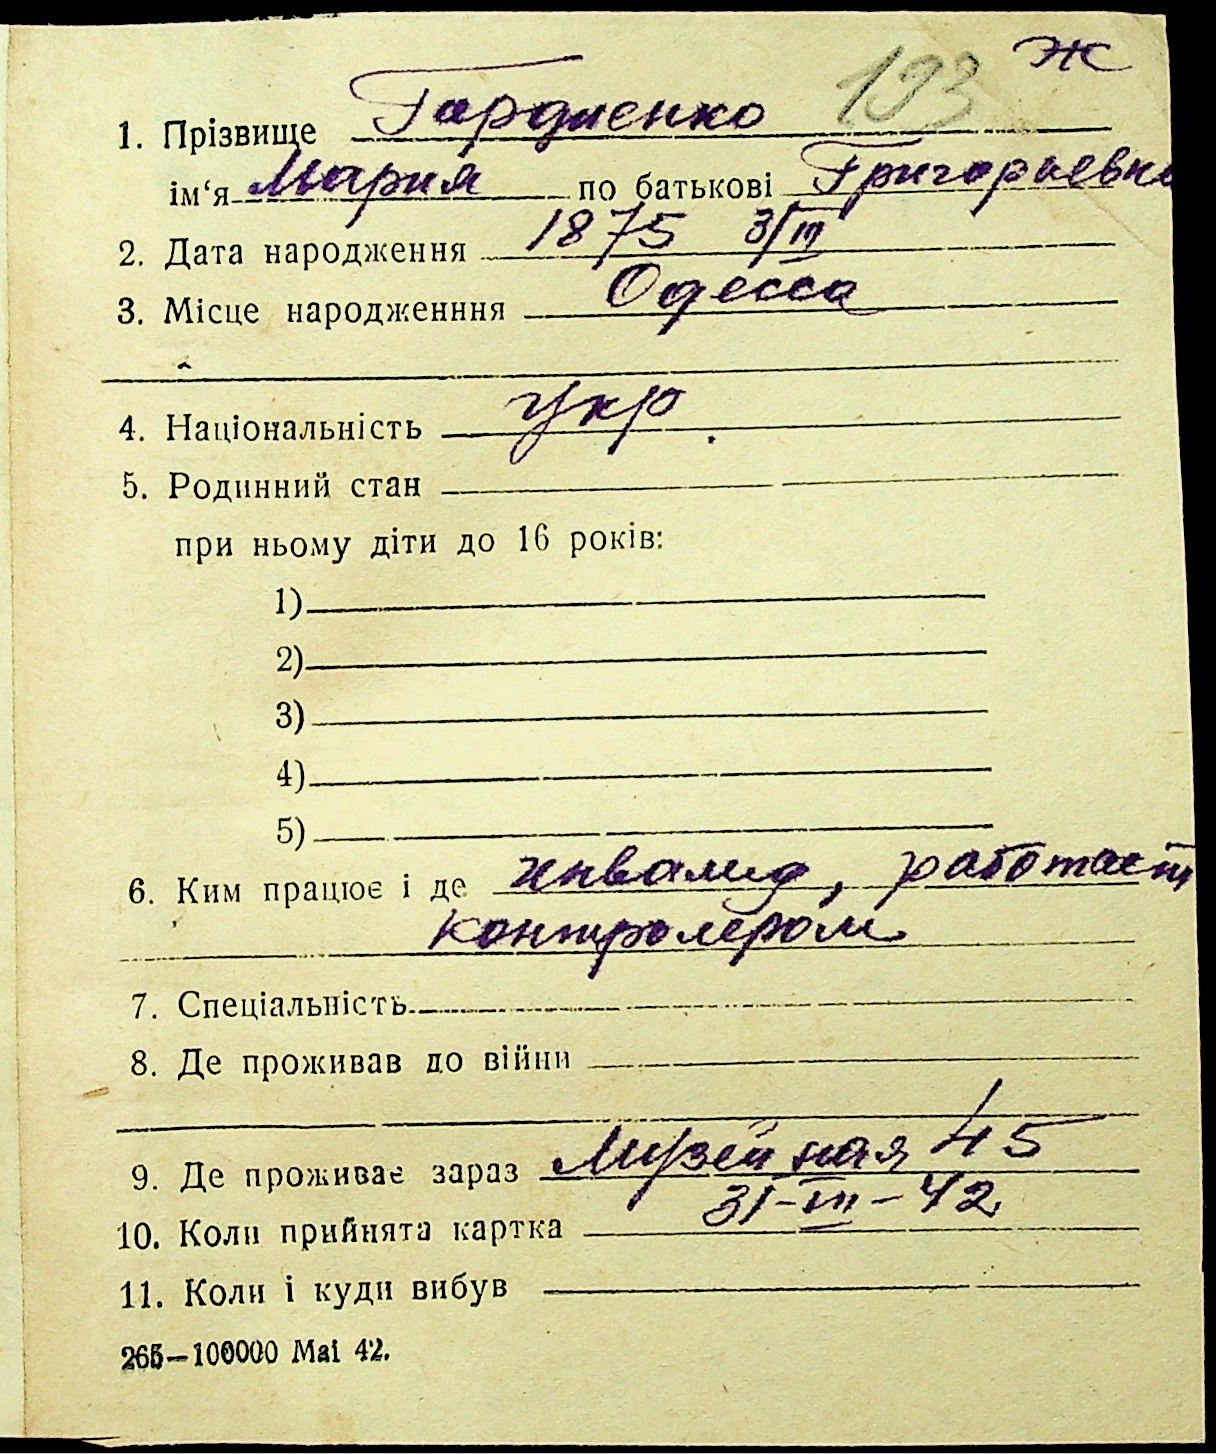 193 Ж
1. Прізвище Гардменко
ім‘я Мария по батькові Григорьевна
2. Дата народження 1875 3/III
3. Місце народженння Одесса
4. Національність укр.
5. Родинний стан
при ньому діти до 16 років:
1)
2)
3)
4)
5)
6. Ким працює і де инвалид, работает
контролером
7. Спеціальність
8. Де проживав до війни
9. Де проживає зараз Музейная 45
10. Коли прийнята картка 31-III-42
11. Коли і куди вибув
265—100000 Mai 42.